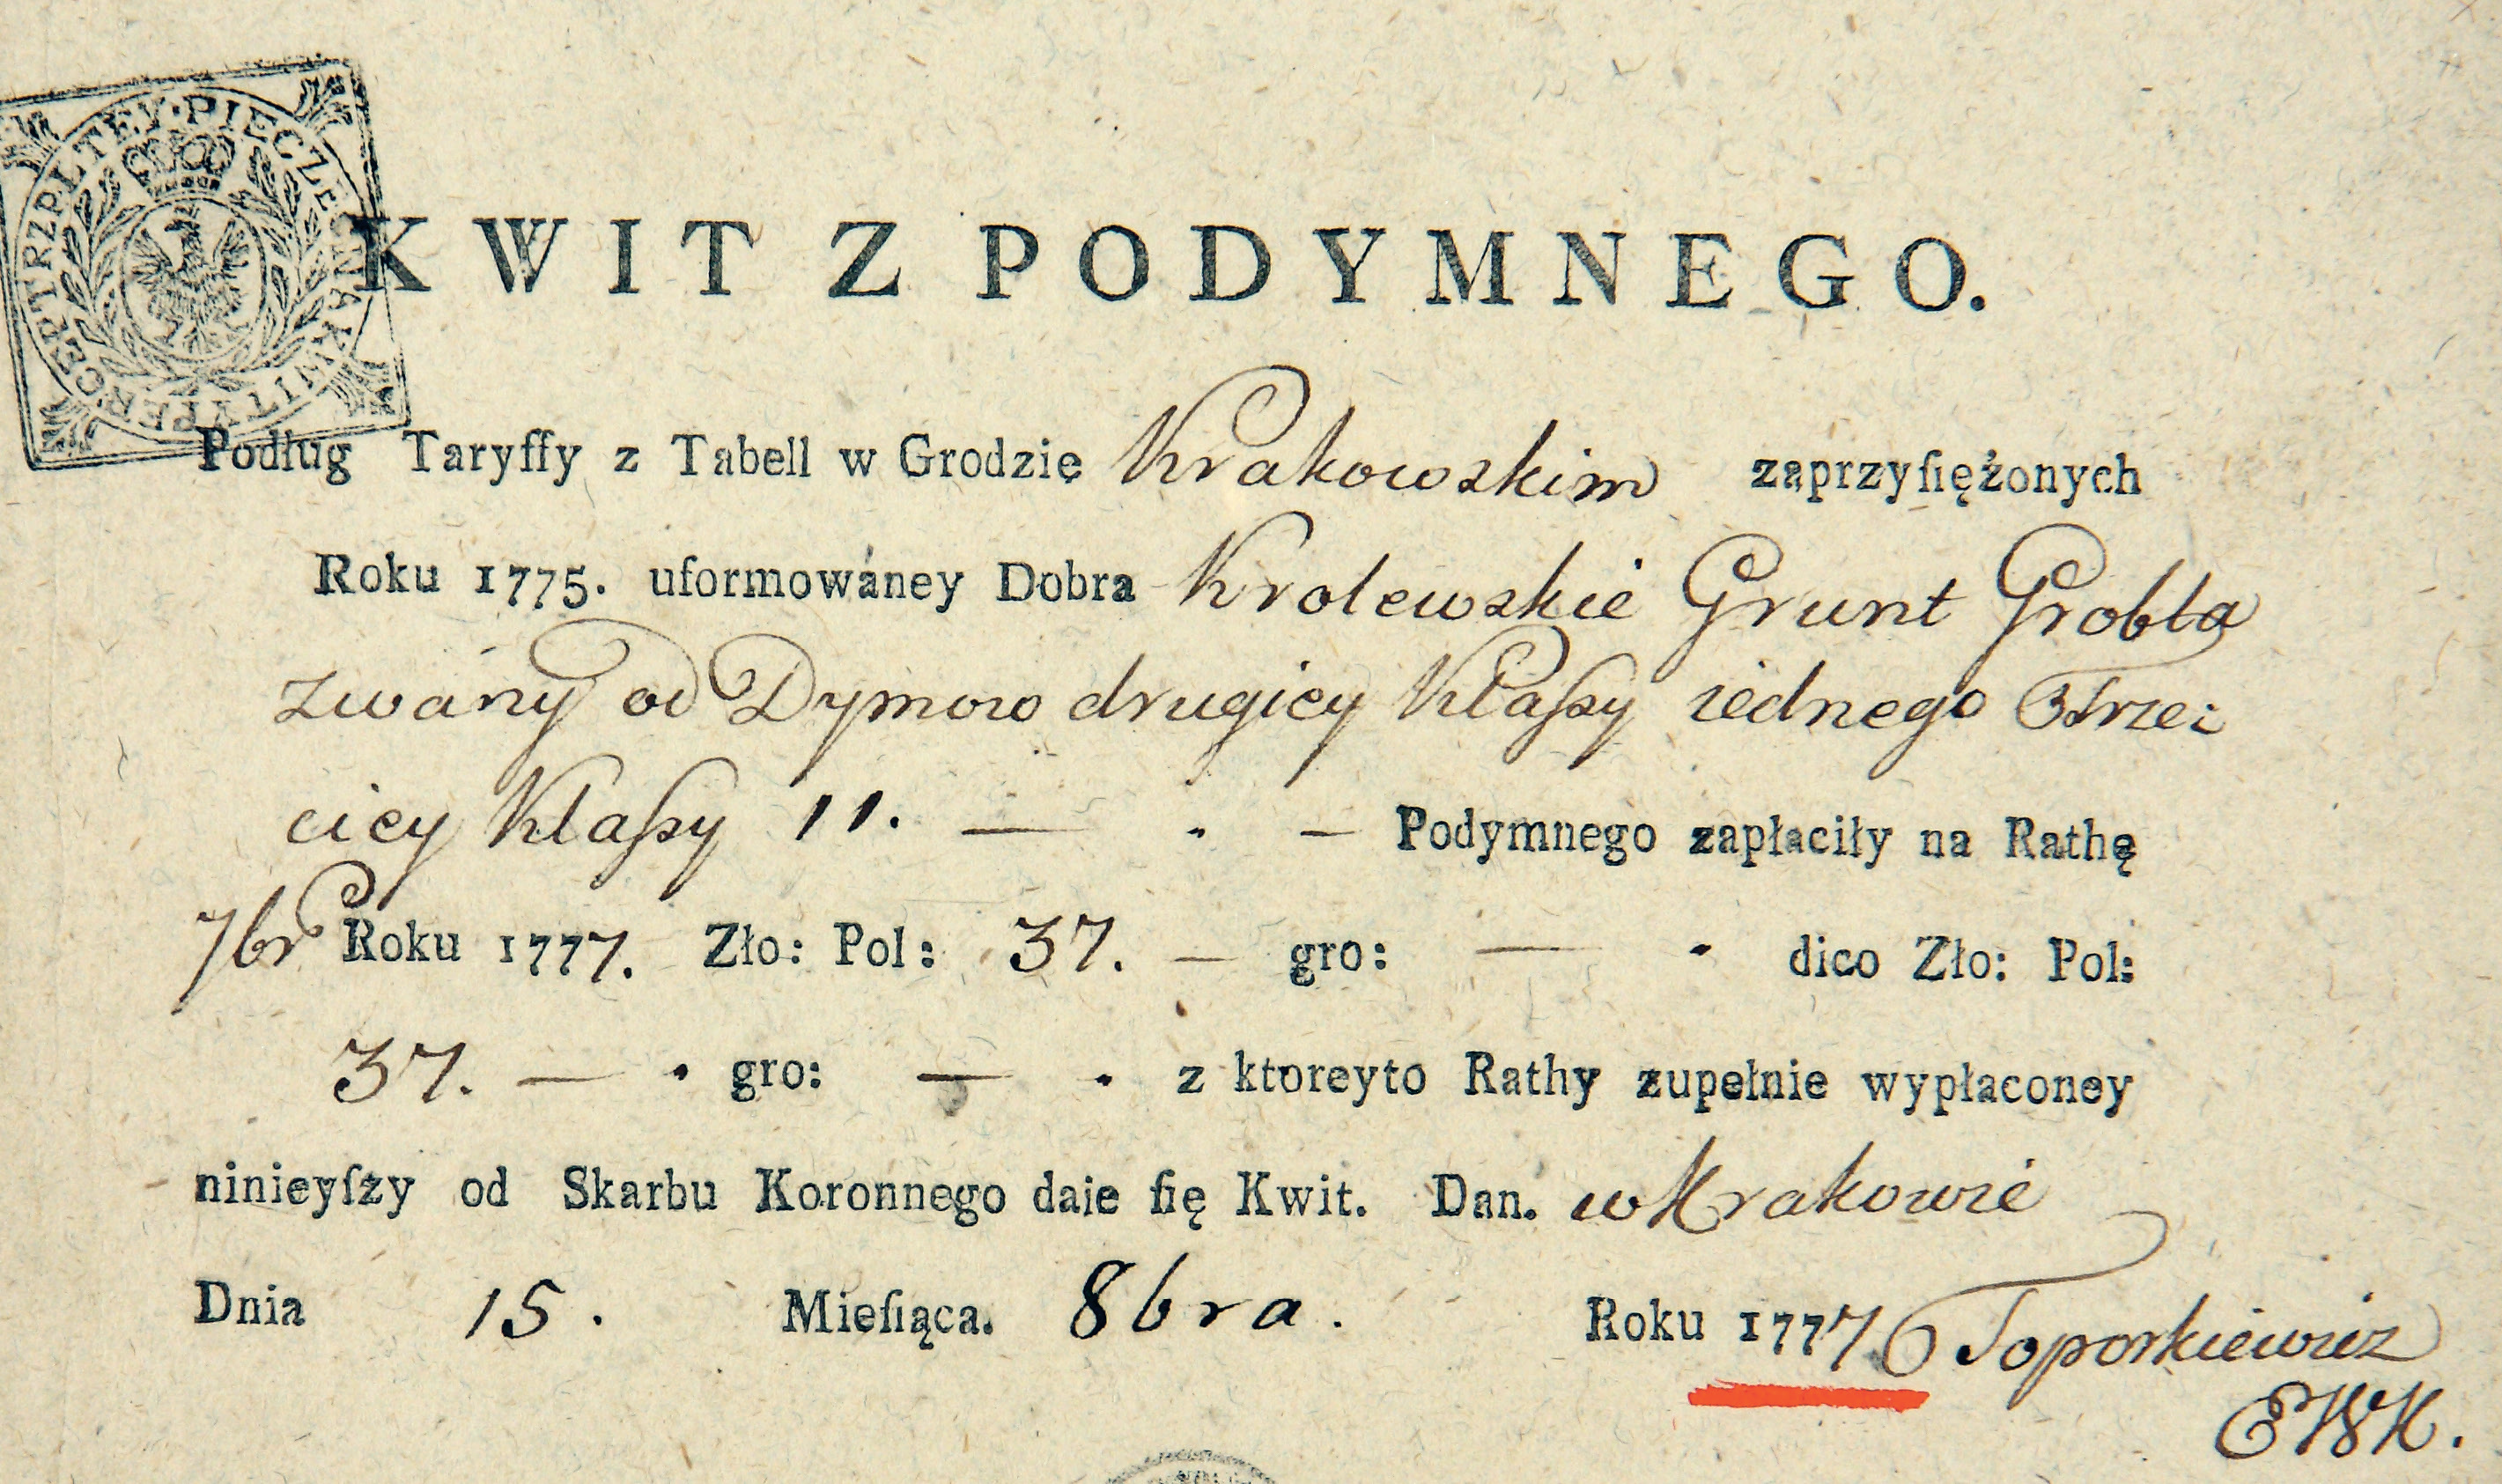 PERCEPTRZPLTEY·PIĘCZĘĆ NA KWITY
KWIT Z PODYMNEGO.
Podług Taryffy z Tabell w Grodzie Krakowskim zaprzyſiężonych
Roku 1775. uformowáney Dobra Krolewskie Grunt Grobla
zwány od Dymow drugiey Klaſsy iednego Trze:
ciey Klaſsy 11. — . — Podymnego zapłaciły na Rathę
7br Roku 1777. Zło: Pol: 37. — gro: — . dico Zło: Pol:
37. — . gro: — . z ktoreyto Rathy zupełnie wypłaconey
ninieyſzy od Skarbu Koronnego daie ſię Kwit. Dan. w Krakowie
Dnia 15. Mieſiąca. 8bra. Roku 1777 Toporkiewicz
EWK.